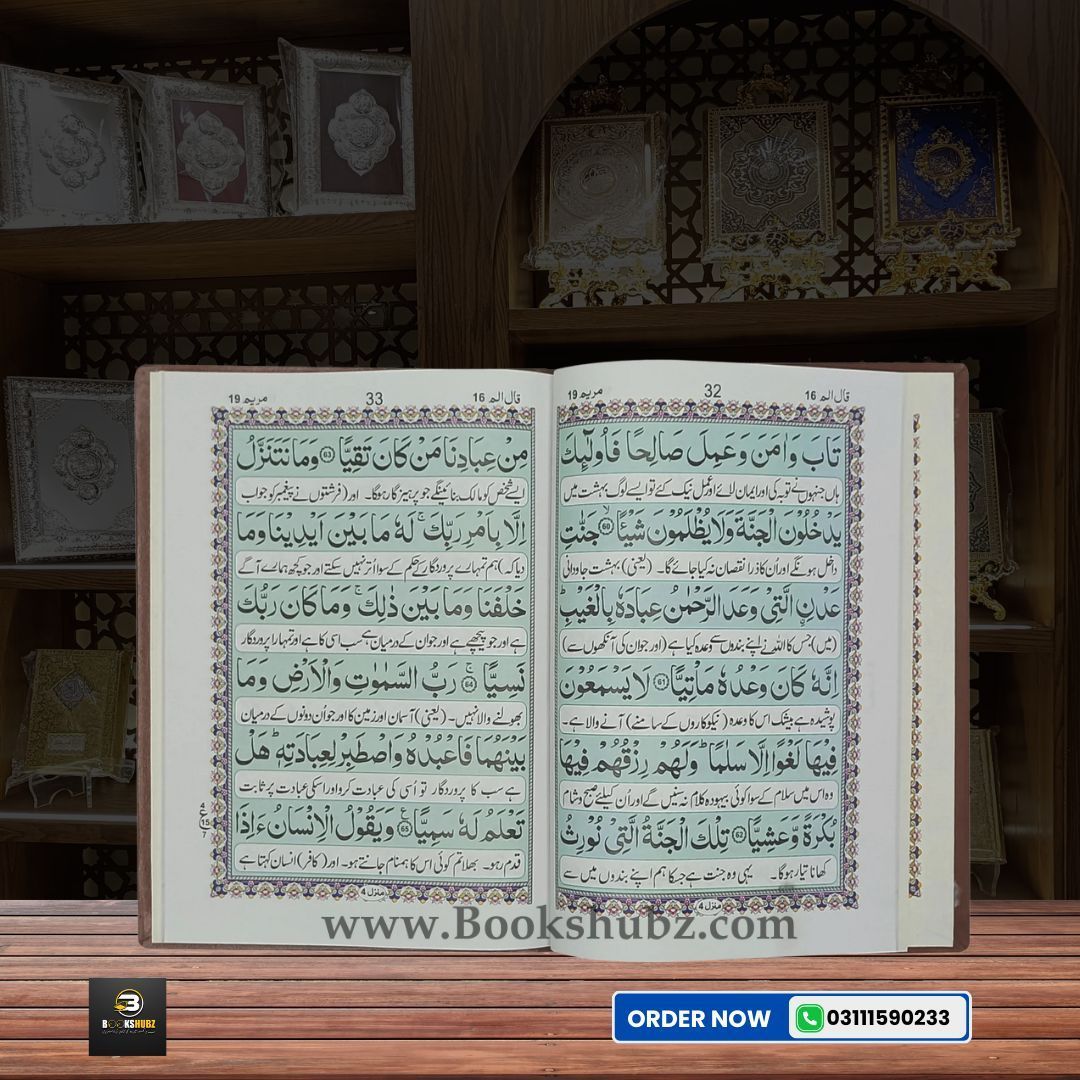 قال الم 16
32
مریم 19
تَابَ وَاٰمَنَ وَعَمِلَ صَالِحًا فَاُولٰٓئِكَ
ہاں جنہوں نے توبہ کی اور ایمان لائے اور عمل نیک کئے تو ایسے لوگ بہشت میں
يَدْخُلُوْنَ الْجَنَّةَ وَلَا يُظْلَمُوْنَ شَيْـًٔا ۙ60 جَنّٰتِ
داخل ہونگے اور اُن کا ذرا نقصان نہ کیا جائے گا۔ (یعنی) بہشت جاودانی
عَدْنِ ۨالَّتِيْ وَعَدَ الرَّحْمٰنُ عِبَادَهٗ بِالْغَيْبِ ؕ
(میں) جس کا اللہ نے اپنے بندوں سے وعدہ کیا ہے (اور جو ان کی آنکھوں سے)
اِنَّهٗ كَانَ وَعْدُهٗ مَاْتِيًّا 61 لَا يَسْمَعُوْنَ
پوشیدہ ہے بیشک اس کا وعدہ (نیکوکاروں کے سامنے) آنے والا ہے۔
فِيْهَا لَغْوًا اِلَّا سَلٰمًا ؕ وَلَهُمْ رِزْقُهُمْ فِيْهَا
وہ اس میں سلام کے سوا کوئی بیہودہ کلام نہ سنیں گے اور اُن کیلئے صبح و شام
بُكْرَةً وَّعَشِيًّا 62 تِلْكَ الْجَنَّةُ الَّتِيْ نُوْرِثُ
کھانا تیار ہوگا۔ یہی وہ جنت ہے جسکا ہم اپنے بندوں میں سے
منزل 4
قال الم 16
33
مریم 19
مِنْ عِبَادِنَا مَنْ كَانَ تَقِيًّا 63 وَمَا نَتَنَزَّلُ
ایسے شخص کو مالک بنائینگے جو پرہیزگار ہوگا۔ اور (فرشتوں نے پیغمبر کو جواب
اِلَّا بِاَمْرِ رَبِّكَ ۚ لَهٗ مَا بَيْنَ اَيْدِيْنَا وَمَا
دیا کہ) ہم تمہارے پروردگار کے حکم کے سوا اُتر نہیں سکتے اور جو کچھ ہمارے آگے
خَلْفَنَا وَمَا بَيْنَ ذٰلِكَ ۚ وَمَا كَانَ رَبُّكَ
ہے اور جو پیچھے ہے اور جو ان کے درمیان ہے سب اسی کا ہے اور تمہارا پروردگار
نَسِيًّا ۚ64 رَبُّ السَّمٰوٰتِ وَالْاَرْضِ وَمَا
بھولنے والا نہیں۔ (یعنی) آسمان اور زمین کا اور جو اُن دونوں کے درمیان
بَيْنَهُمَا فَاعْبُدْهُ وَاصْطَبِرْ لِعِبَادَتِهٖ ؕ هَلْ
ہے سب کا پروردگار تو اُسی کی عبادت کرو اور اسکی عبادت پر ثابت
تَعْلَمُ لَهٗ سَمِيًّا ۧ65 وَيَقُوْلُ الْاِنْسَانُ ءَاِذَا
قدم رہو۔ بھلا تم کوئی اس کا ہمنام جانتے ہو۔ اور (کافر) انسان کہتا ہے
4
ع 15
7
منزل 4
www.Bookshubz.com
BOOKSHUBZ
ORDER NOW 03111590233